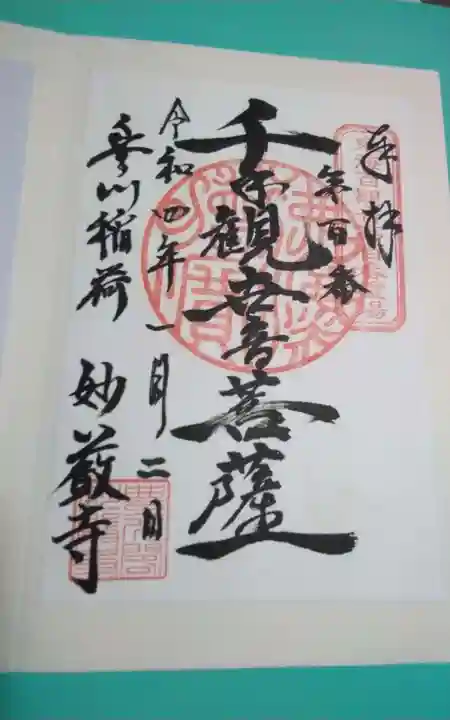 奉拝
第百番
千手觀世音菩薩
令和四年一月二日
豊川稲荷 妙厳寺